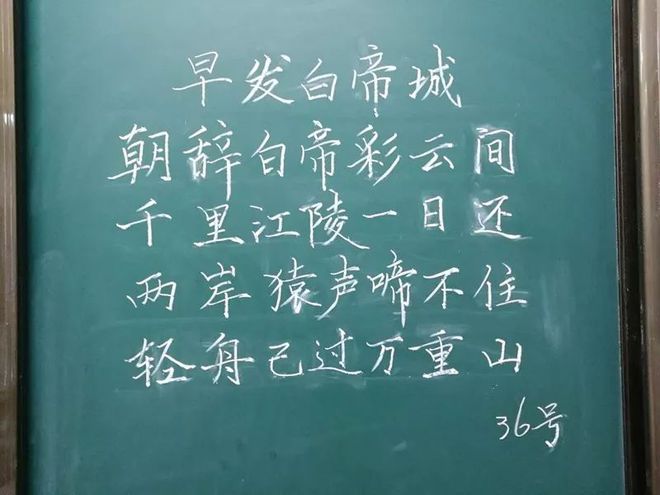 早发白帝城
朝辞白帝彩云间
千里江陵一日还
两岸猿声啼不住
轻舟已过万重山
36号